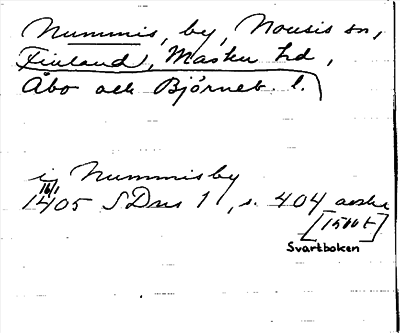 Nummis, by, Nousis sn,
Finland, Masku hd,
Åbo och Björneb. l.
i Nummisby
16/1
1405 SDns 1, s. 404 avskr
[1500 t]
Svartboken